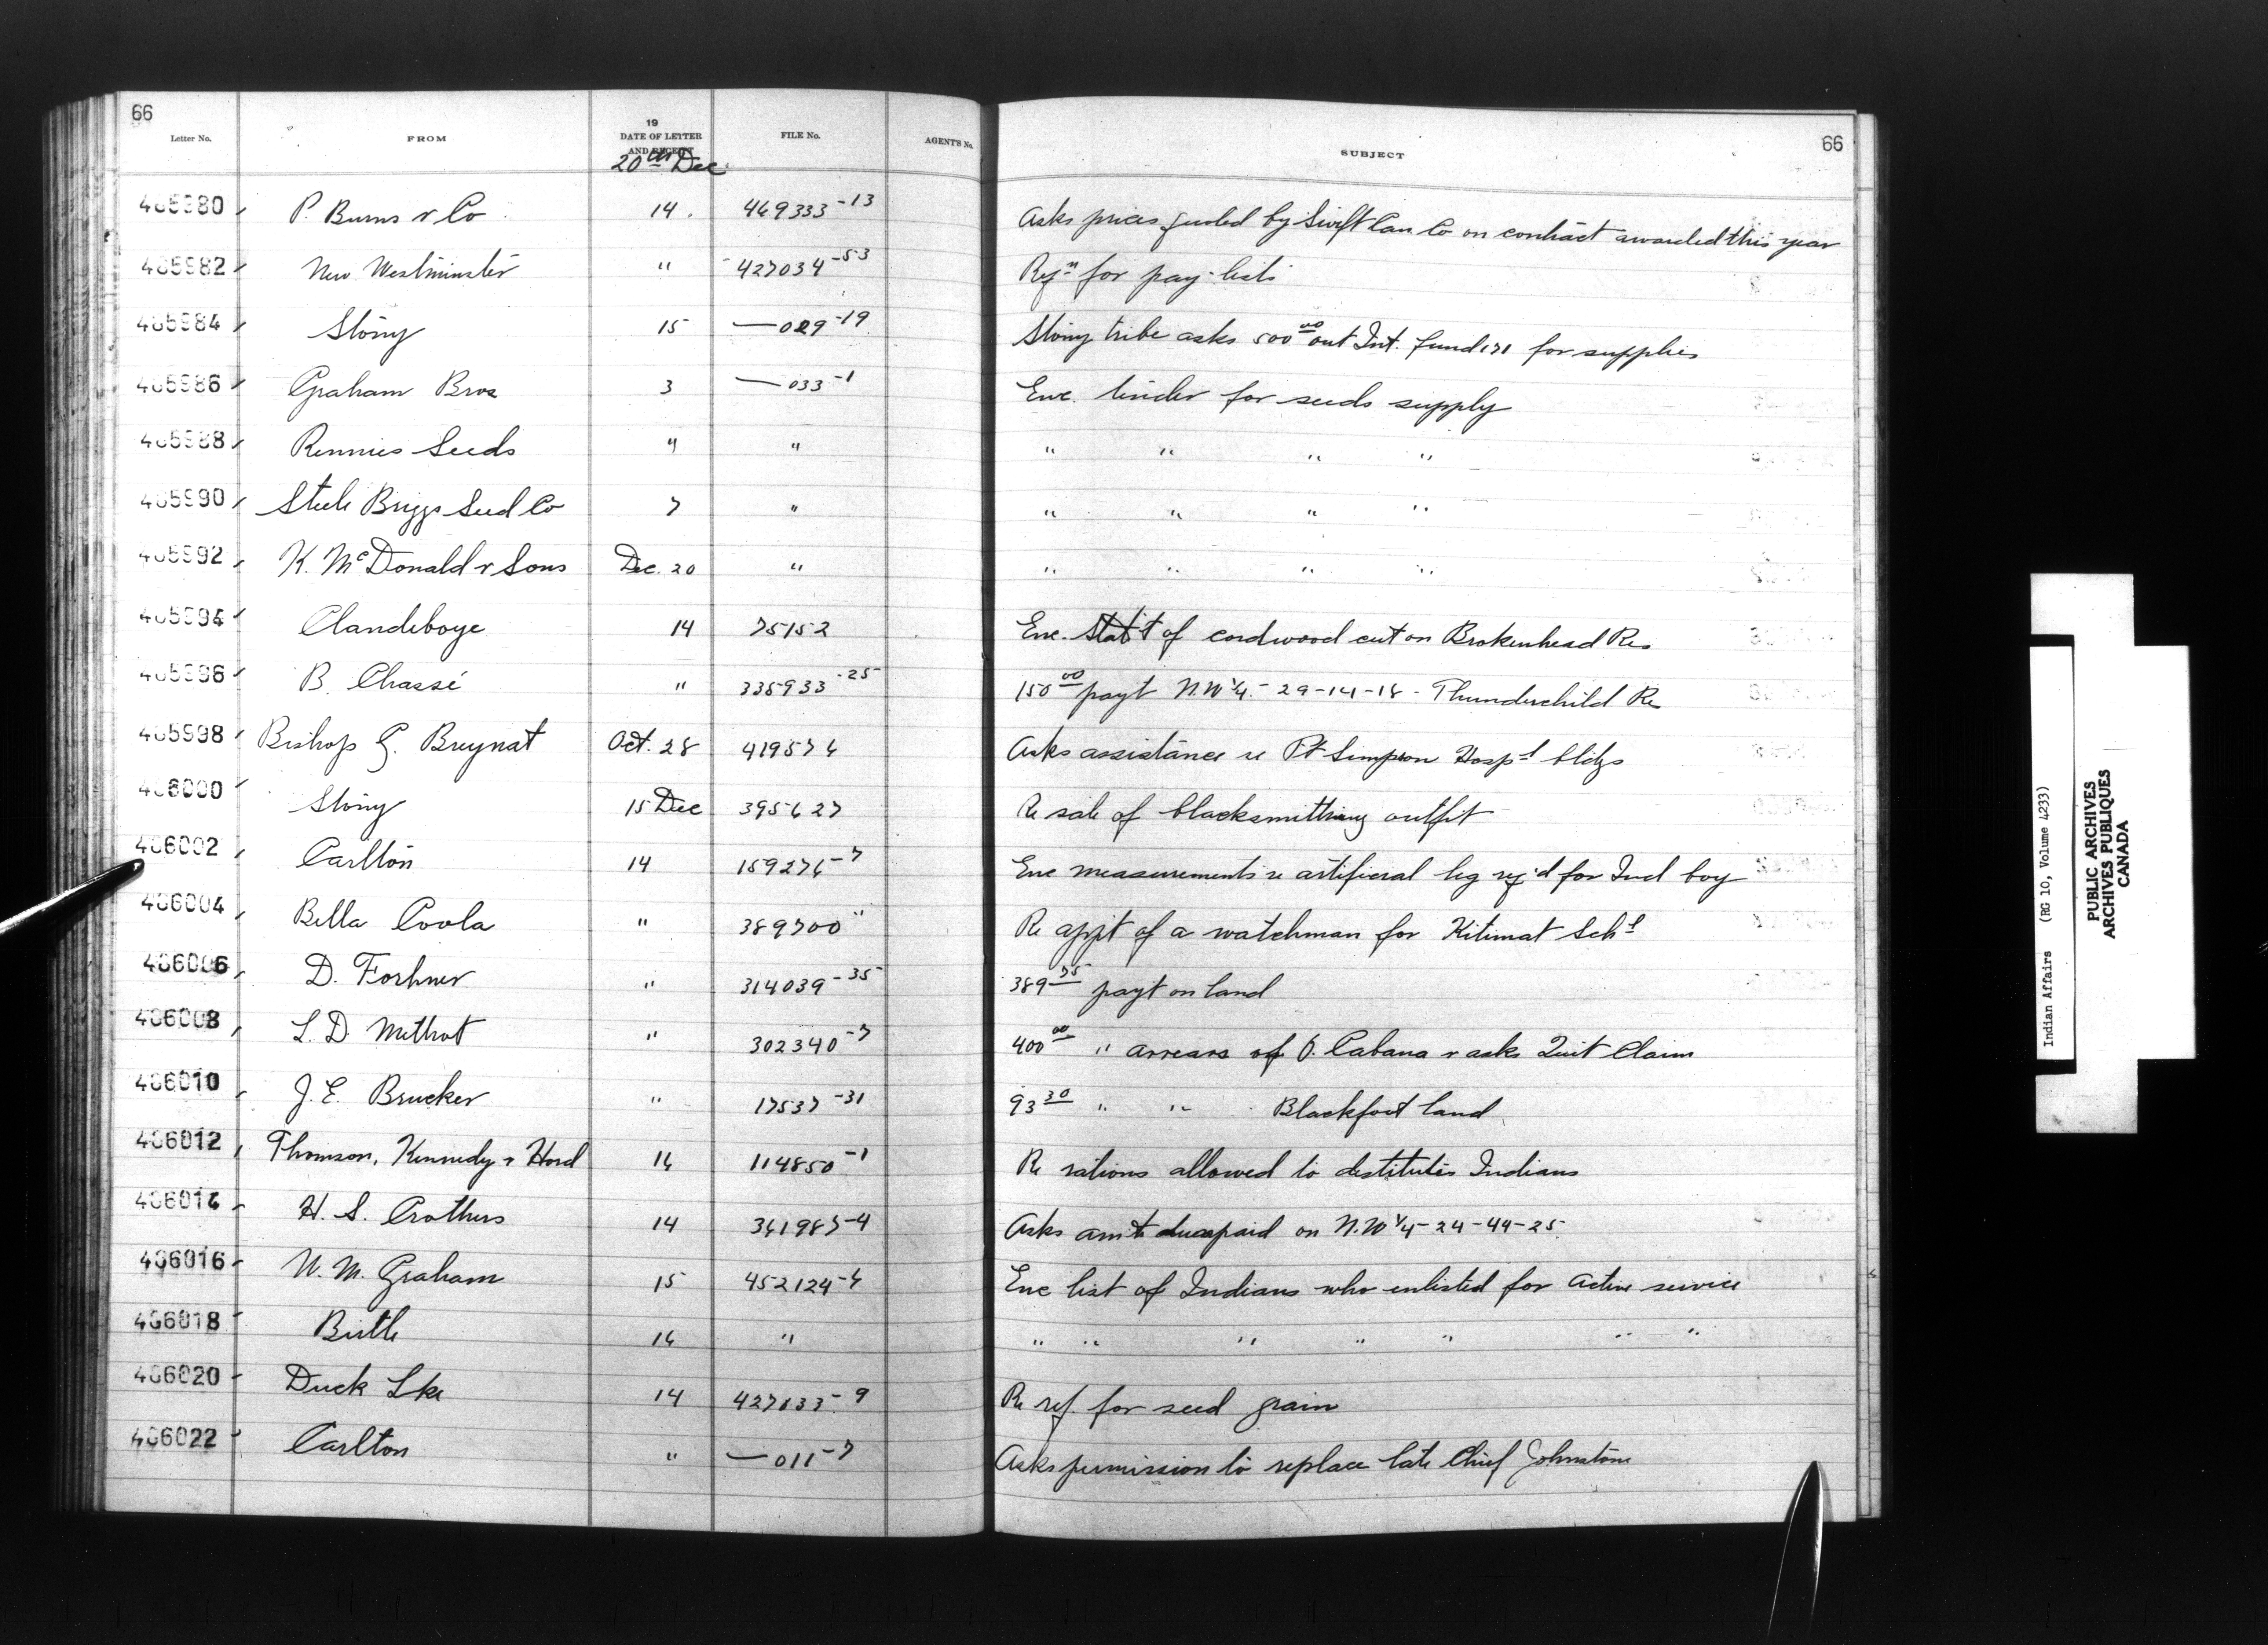 66
Letter No. FROM 19 DATE OF LETTER AND RECEIPT FILE No. AGENT'S No. SUBJECT 66
20th Dec
465980 P. Burns & Co 14. 469333-13 Asks prices quoted by Swift Can Co on contract awarded this year
465982 New Westminster " 427034-53 Reqn for pay-lists
465984 Stony 15 —029-19 Stony tribe asks 500 00 out Int. fund 171 for supplies
465986 Graham Bros 3 —033-1 Enc. tender for seeds supply
465988 Rennies Seeds " " " " " "
465990 Steele Briggs Seed Co 7 " " " " "
465992 K. McDonald & Sons Dec. 20 " " " " "
465994 Clandeboye 14 75152 Enc. Stat't of cordwood cut on Brokenhead Res
465996 B. Chassé " 335933-25 150 00 payt N.W 1/4 - 29-14-18 - Thunderchild Re
465998 Bishop G. Breynat Oct. 28 419576 Asks assistance re Ft Simpson Hospl bldgs
466000 Stony 15 Dec 395627 Re sale of blacksmithing outfit
466002 Carlton 14 159276-7 Enc measurements re artificial leg req'd for Ind boy
466004 Bella Coola " 389700 " Re appt of a watchman for Kitimat Schl
466006 D. Forhner " 314039-35 389 75 payt on land
466008 L. D Methot " 302340-7 400 00 " arrears of O. Cabana & asks Quit Claim
466010 J. E. Brucker " 17537-31 93 30 " " Blackfoot land
466012 Thomson, Kennedy & Hord 16 114850-1 Re rations allowed to destitutes Indians
466014 H. S. Crothers 14 361987-4 Asks amt paid on N.W 1/4-24-44-25
466016 W. M. Graham 15 452124-6 Enc list of Indians who enlisted for active service
466018 Birtle 16 " " " " " " " "
466020 Duck Lke 14 427033-9 Re ref. for seed grain
466022 Carlton " —011-7 Asks permission to replace late Chief Johnstone
Indian Affairs (RG 10, Volume 4233)
PUBLIC ARCHIVES
ARCHIVES PUBLIQUES
CANADA